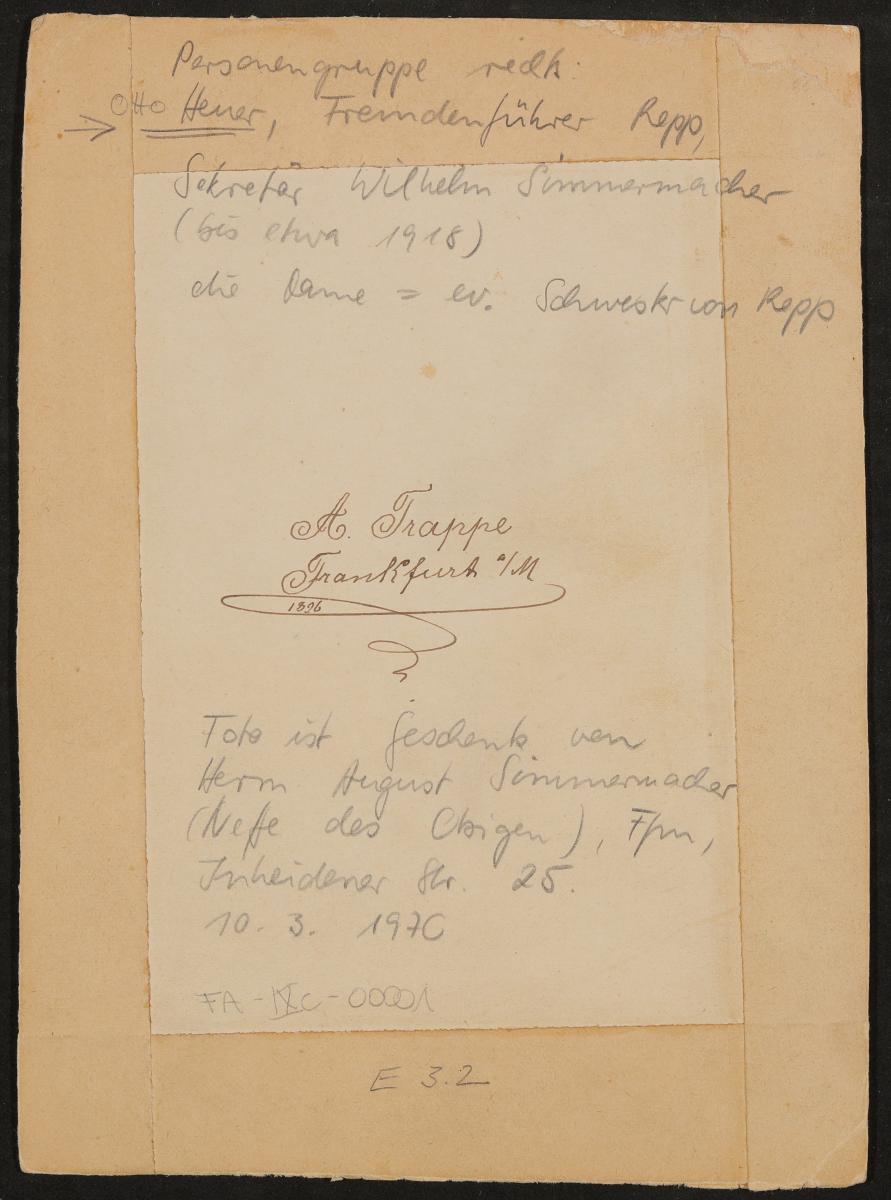 Personengruppe rechts:
→ Otto Heuer, Fremdenführer Repp,
Sekretär Wilhelm Simmermacher
(bis etwa 1918)
die Dame = ev. Schwester von Repp
A. Trappe
Frankfurt a/M
1896
Foto ist Geschenk von
Herrn August Simmermacher
(Neffe des Obigen), Ffm,
Inheidener Str. 25.
10. 3. 1970
FA-IXc-00001
E 3.2